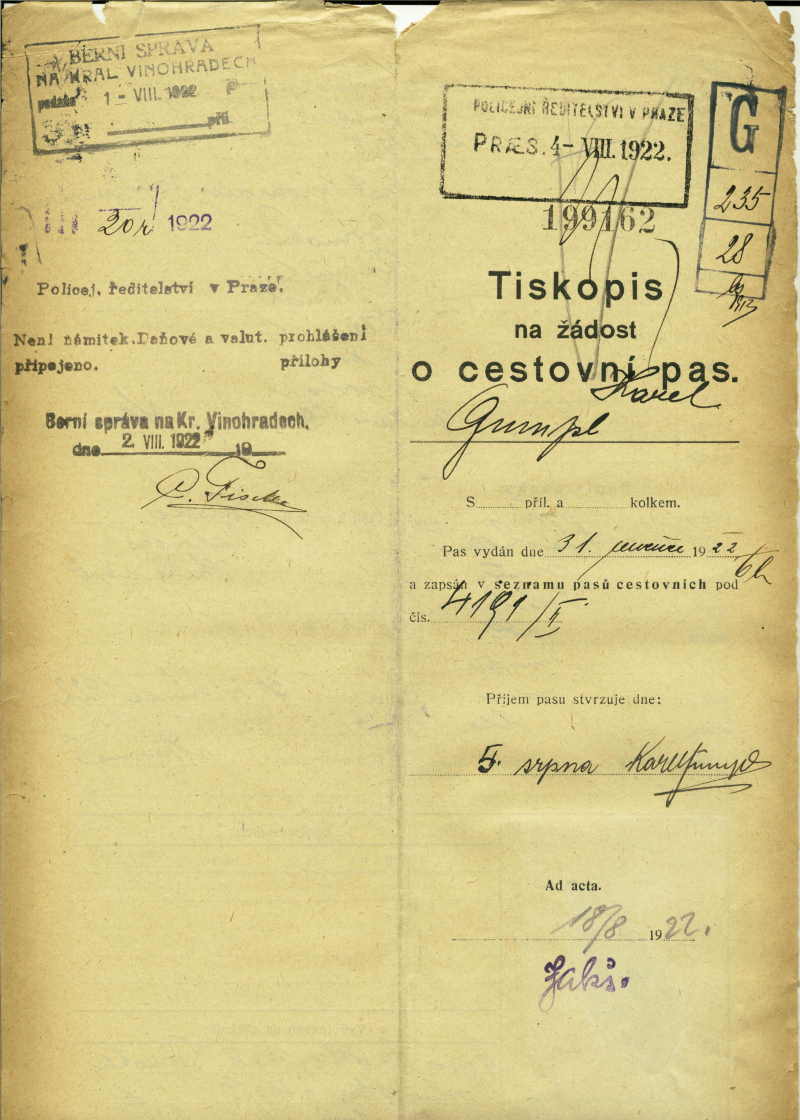 BERNÍ SPRÁVA
NA KRÁL VINOHRADECH
podáno 1 - VIII. 1922
příl.
III 1922
Policej. ředitelství v Praze.
Není námitek.Daňové a valut. prohlášení
připojeno. přílohy
Berní správa na Kr. Vinohradech,
dne 2. VIII. 1922 19
Fischer
POLICEJNÍ ŘEDITELSTVÍ V PRAZE
PRÆS. 4- VIII. 1922.
199162
G
235
28
Tiskopis
na žádost
o cestovní pas.
Karel
Gumpl
S příl. a kolkem.
Pas vydán dne 31. července 1922
a zapsán v seznamu pasů cestovních pod
čís. 4191/II
Příjem pasu stvrzuje dne:
5. srpna Karel Gumpl
Ad acta.
18/8 1922.
Jakš.